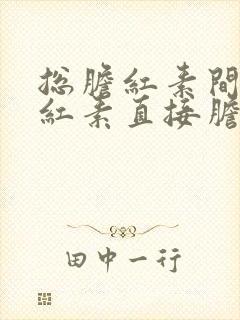 总膽紅素間
紅素直接膽
田中一行